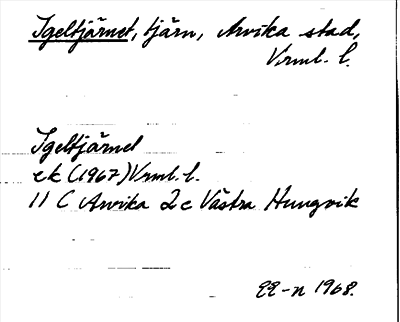 Igeltjärnet, tjärn, Arvika stad,
Vrml. l.
Igeltjärnet
ek (1967) Vrml. l.
11 C Arvika 2c Västra Hungvik
EE-n 1968.